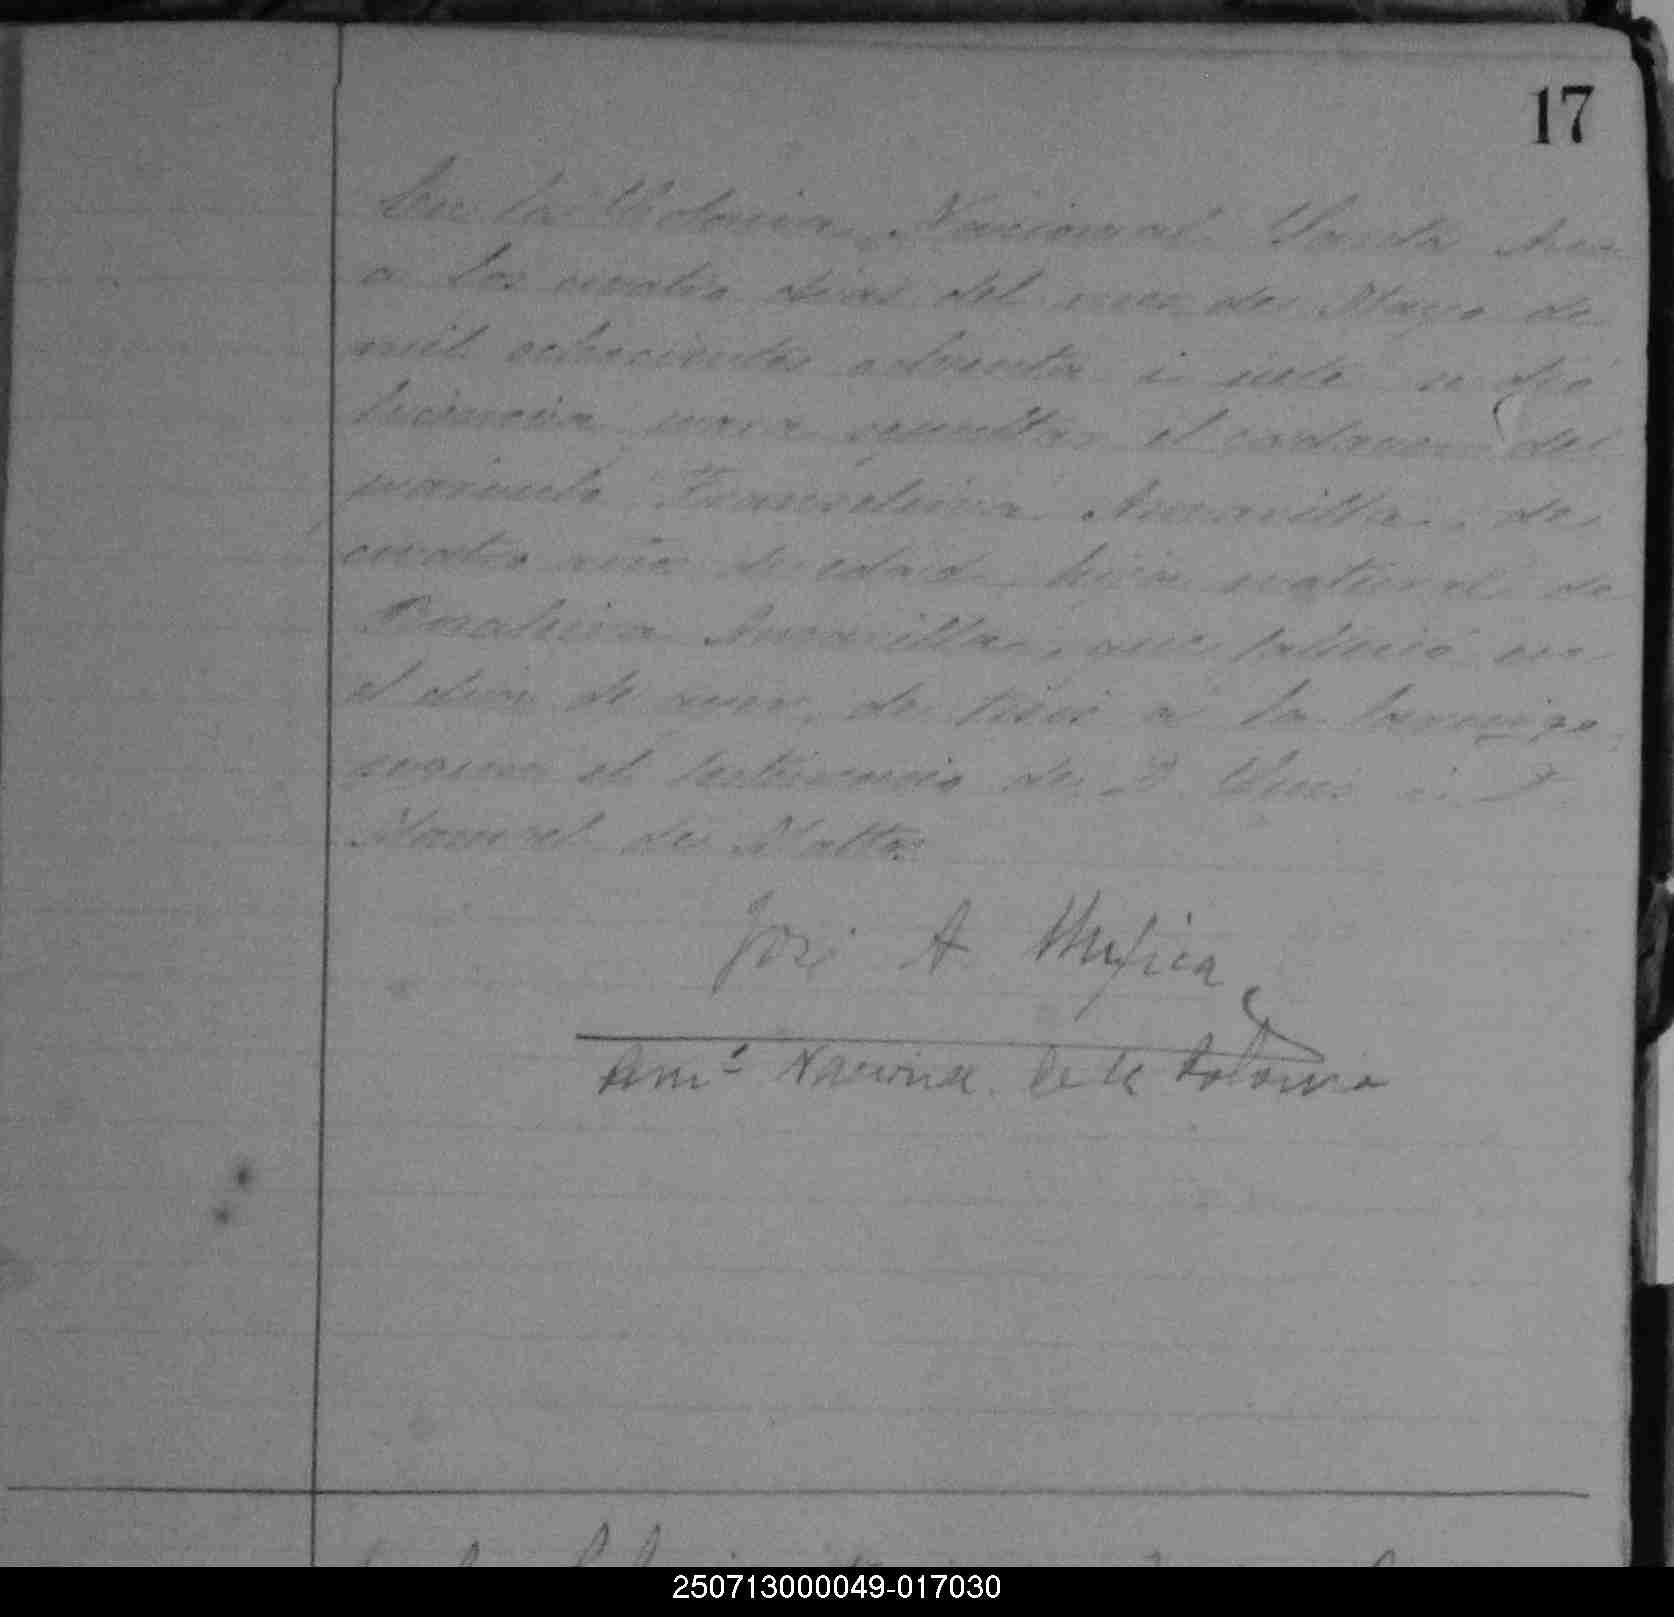 17
En la Colonia Nacional Santa Ana
a los cuatro dias del mes de Mayo de
mil ochocientos ochenta i siete se dió
licencia para sepultar el cadaver del
parvulo Amarilla, de
cuatro de edad hijo natural de
Amarilla, que falleció en
el dia de ayer, de tisis a la laringe,
segun el testimonio de D. i D.
Manuel de Matto.
José A. Mujica
Nacional de la Colonia
250713000049-017030